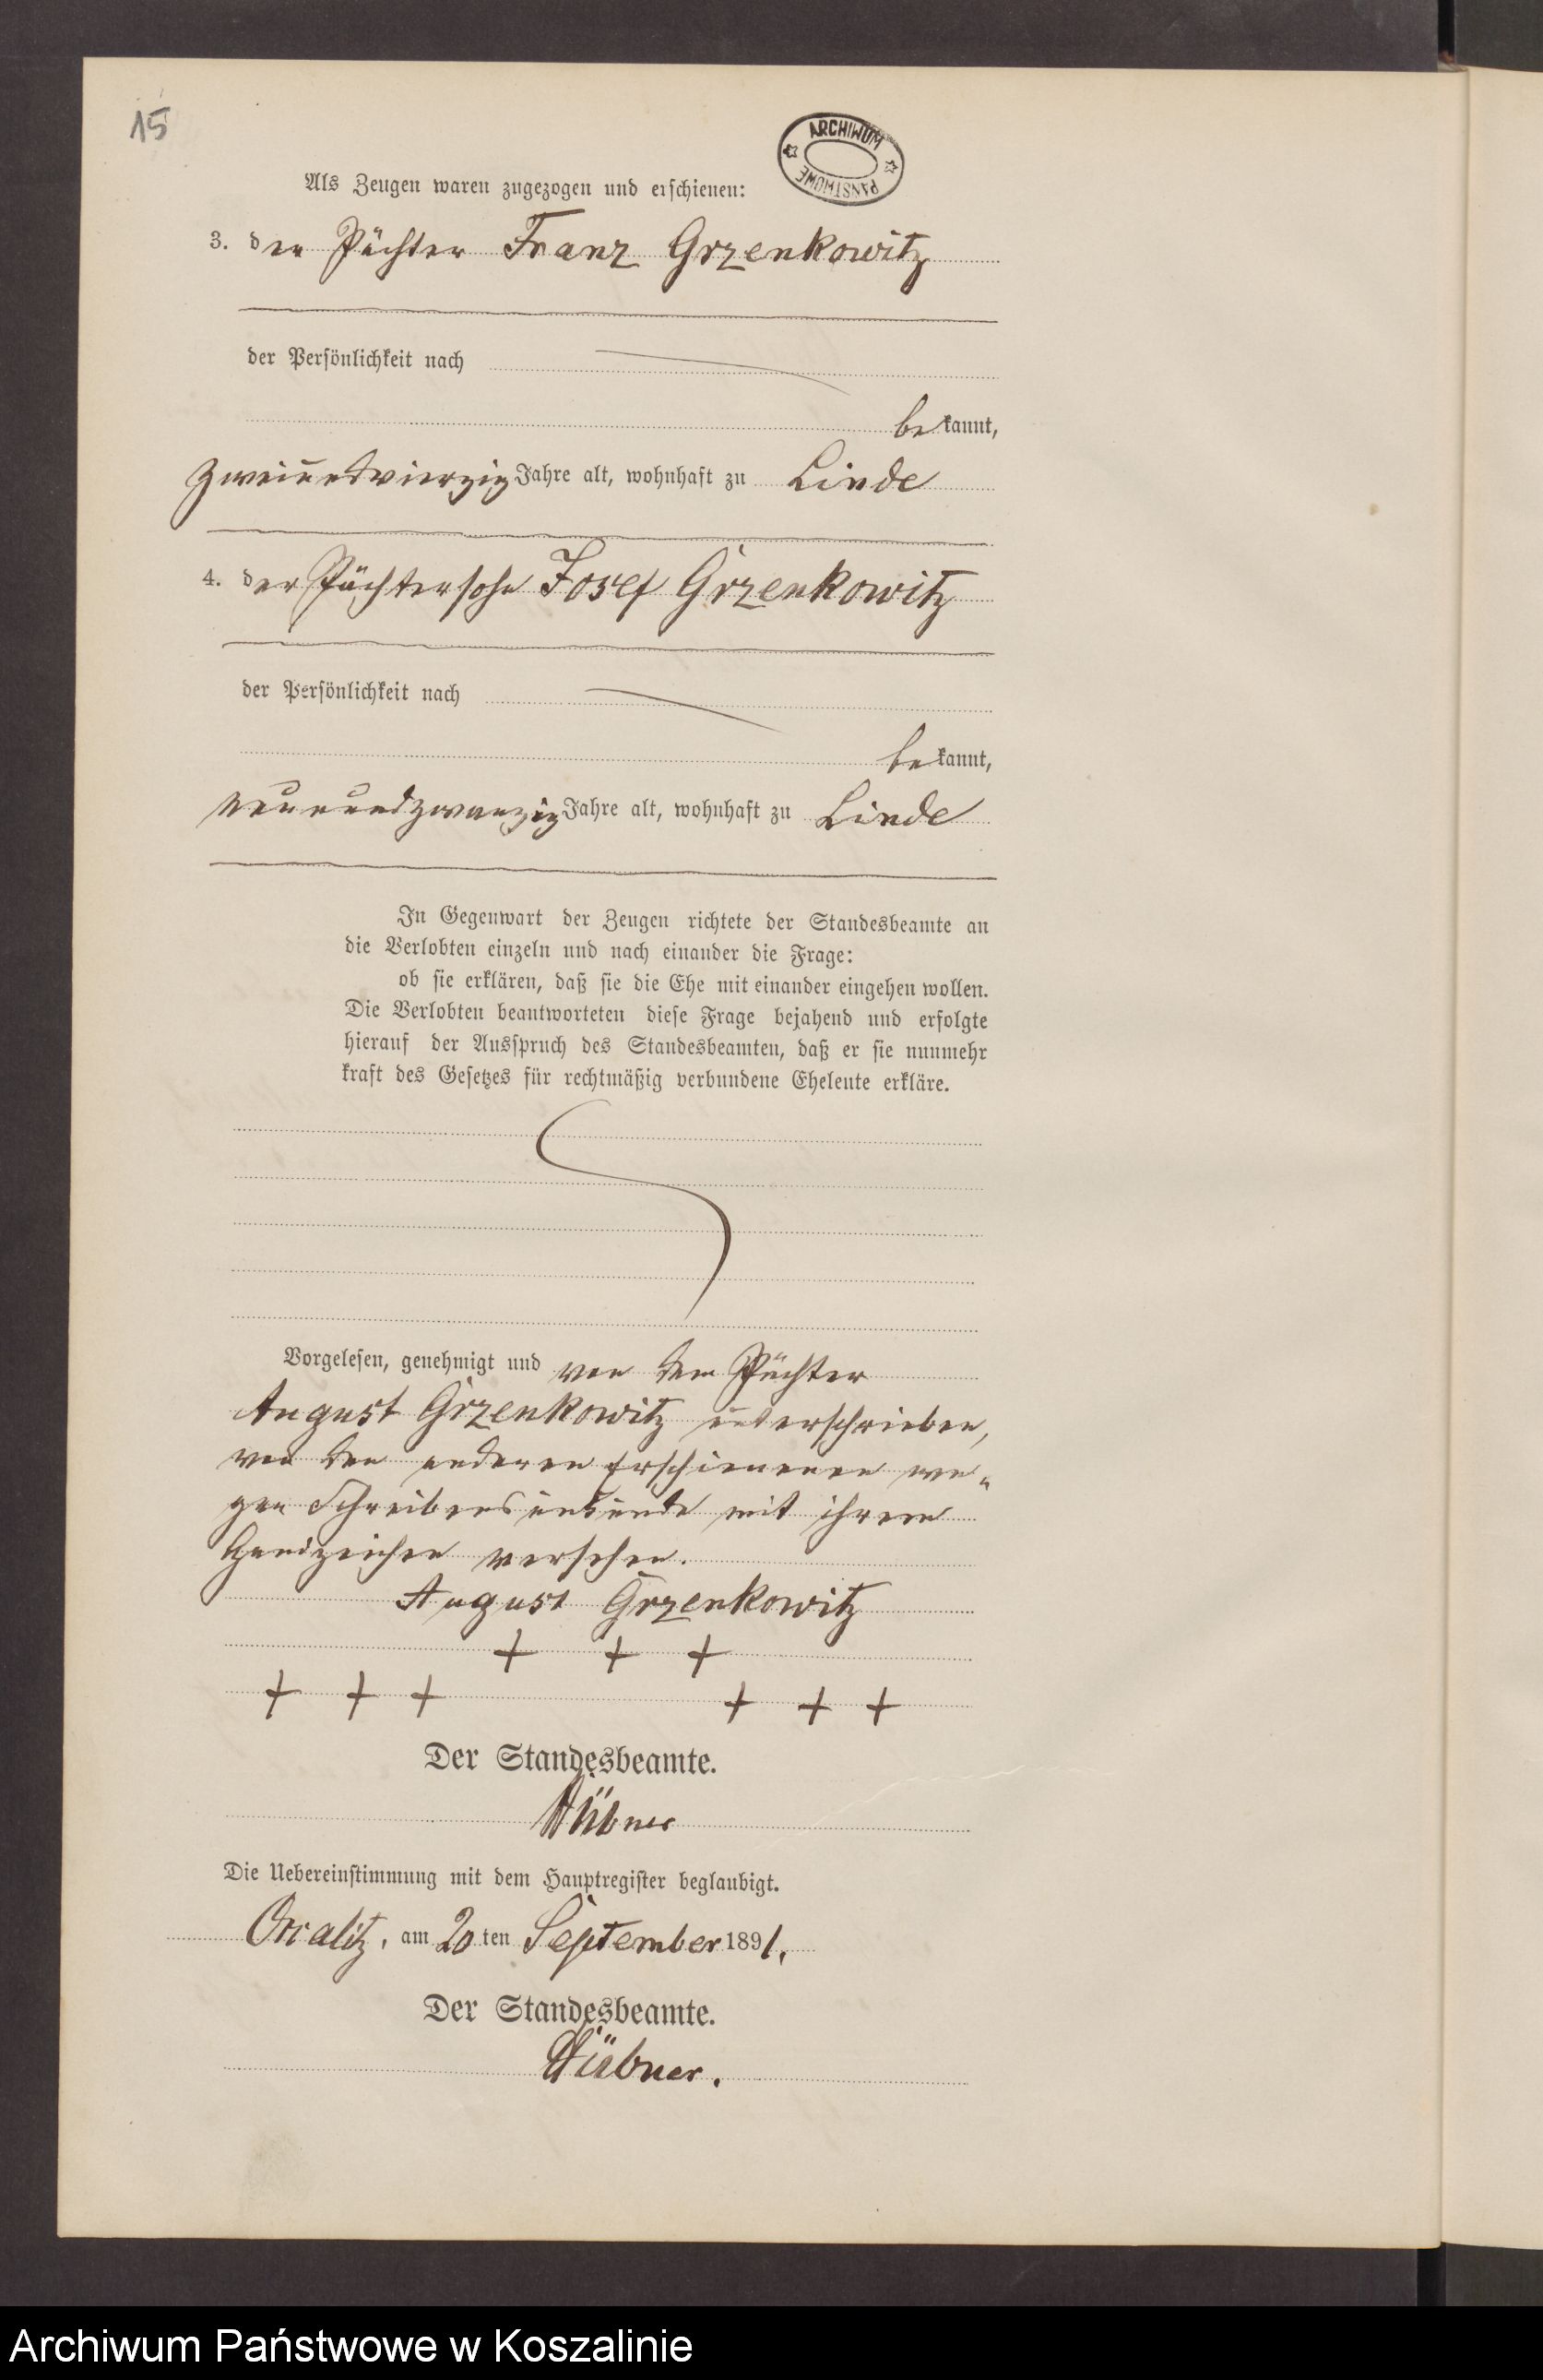 15
ARCHIWUM
PAŃSTWOWE
Als Zeugen waren zugezogen und erschienen:
3. der Pächter Franz Grzenkowitz
der Persönlichkeit nach
bekannt,
zweiundvierzig Jahre alt, wohnhaft zu Linde
4. der Pächtersohn Josef Grzenkowitz
der Persönlichkeit nach
bekannt,
neunundzwanzig Jahre alt, wohnhaft zu Linde
In Gegenwart der Zeugen richtete der Standesbeamte an
die Verlobten einzeln und nach einander die Frage:
ob sie erklären, daß sie die Ehe mit einander eingehen wollen.
Die Verlobten beantworteten diese Frage bejahend und erfolgte
hierauf der Ausspruch des Standesbeamten, daß er sie nunmehr
kraft des Gesetzes für rechtmäßig verbundene Eheleute erkläre.
Vorgelesen, genehmigt und von dem Pächter
August Grzenkowitz unterschrieben,
von den anderen Erschienenen we-
gen Schreibensunkunde mit ihrem
Handzeichen versehen.
August Grzenkowitz
+ + +
+ + + + + +
Der Standesbeamte.
Hübner
Die Uebereinstimmung mit dem Hauptregister beglaubigt.
am 20ten September 1891.
Der Standesbeamte.
Hübner.
Archiwum Państwowe w Koszalinie